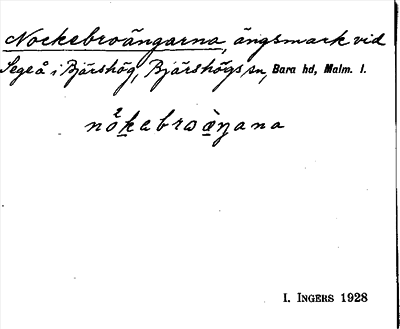 Nockebroängarna, ängsmark vid
Segeå i Bjärshög, Bjärshögs sn, Bara hd, Malm. l.
nåkabrωæŋana
I. INGERS 1928